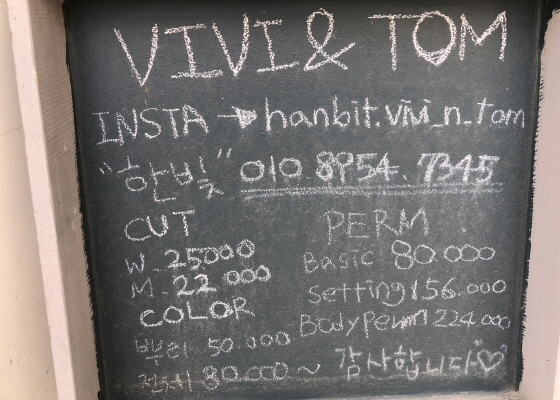 VIVI & TOM
INSTA → hanbit.vivi_n_tom
"한빛" 010.8954.7345
CUT
W. 25000
M. 22 000
COLOR
뿌리 50.000
전체 80.000 ~
PERM
Basic 80.000
setting 156.000
Bodyperm 224.000
감사합니다♡